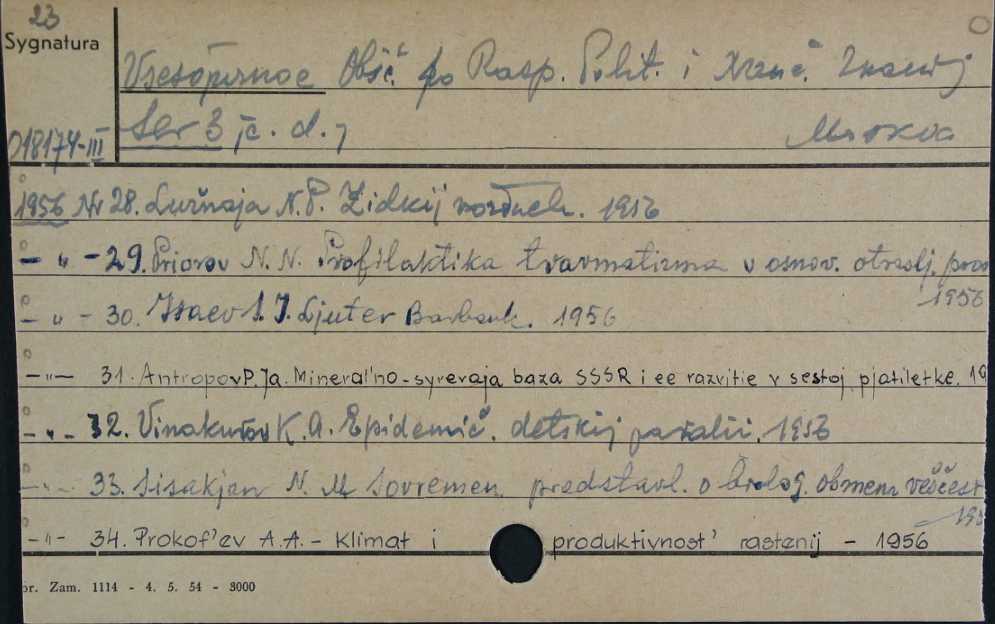 23
Sygnatura
Vsesojuznoe Obšč. po Rasp. Polit. i Naučn. Znanij
Ser 3 /c. d./ Moskva
018174-III
1956 Nr 28. Lužnaja N.P. Židkij vozduch. 1956
- " - 29. Priorov N.N. Profilaktika travmatizma v osnov. otraslj. prom
1956
- " - 30. Isaev S.I. Ljuter Barbank. 1956
- " - 31. Antropov P. Ja. Mineral'no-syrevaja baza SSSR i ee razvitie v šestoj pjatiletke. 19
- " - 32. Vinokurov K. A. Epidemič. detskij paralič. 1956
- " - 33. Sisakjan N. M Sovremen. predstavl. o biolog. obmene veščest
195
- " - 34. Prokof'ev A.A. - Klimat i produktivnost' rastenij - 1956
or. Zam. 1114 - 4. 5. 54 - 3000